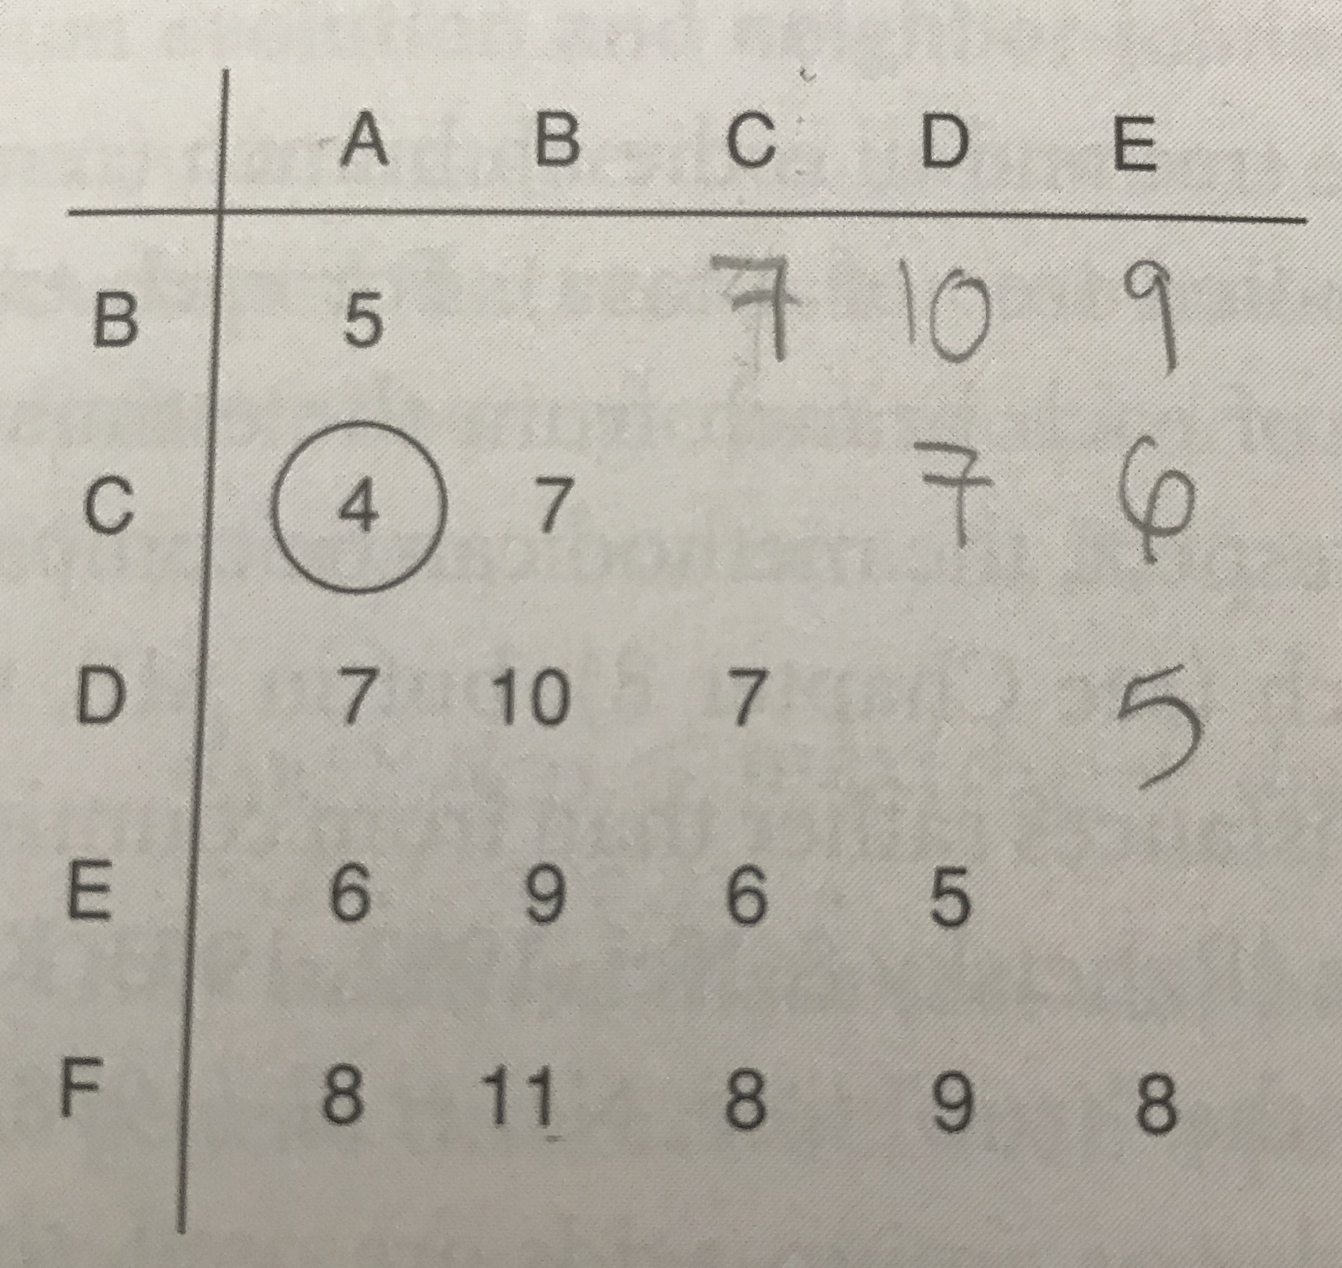 A B C D E
B 5 7 10 9
C 4 7 7 6
D 7 10 7 5
E 6 9 6 5
F 8 11 8 9 8